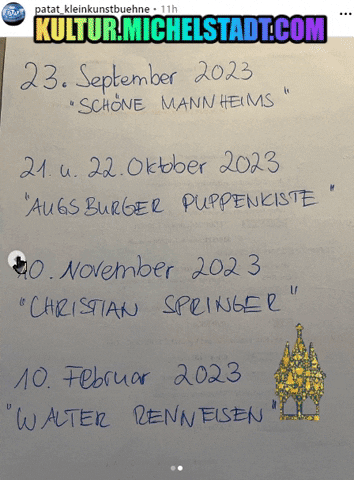 patat_kleinkunstbuehne • 11h
KULTUR.MICHELSTADT.COM
23. September 2023
"SCHÖNE MANNHEIMS"
21. u. 22. Oktober 2023
"AUGSBURGER PUPPENKISTE"
10. November 2023
"CHRISTIAN SPRINGER"
10. Februar 2023
"WALTER RENNEISEN"